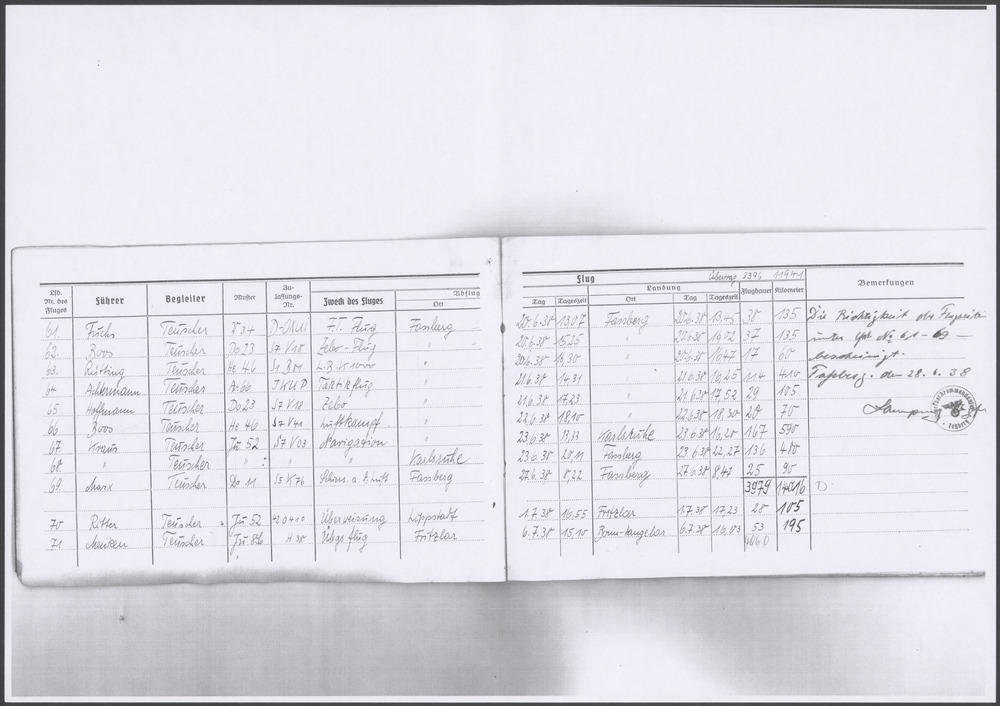 Flug Übertrag 3396 11941
Lfd. Nr. des Fluges Führer Begleiter Muster Zu-lassungs-Nr. Zweck des Fluges Abflug Ort Tag Tageszeit Landung Ort Tag Tageszeit Flugdauer Kilometer Bemerkungen
61. Fuchs Teuscher F.T. Flug Fassberg 20.6.38 13.07 Fassberg 20.6.38 13.45 38 135 Die Richtigkeit der
62. Boos Teuscher Do 23 S7 V18 Zebo-Flug " 20.6.38 15.25 " 20.6.38 16.02 37 135 unter No 61 - 69 -
63. Teuscher He 46 " 20.6.38 16.30 " 20.6.38 16.47 17 60 bescheinigt.
64 Ackermann Teuscher A-66 Taktikflug " 21.6.38 14.31 21.6.38 16.25 114 410 Faßberg, den 28.6.38
65 Hoffmann Teuscher Do 23 S7 V18 Zebo " 21.6.38 17.23 " 21.6.38 17.52 29 105
66 Boos Teuscher He 46 Luftkampf " 22.6.38 18.10 " 22.6.38 18.30 20 70
67. Kraus Teuscher Ju 52 S7 V03 Navigation " 23.6.38 13.33 Karlsruhe 23.6.38 16.20 167 590
68. " Teuscher " : " " Karlsruhe 23.6.38 20.11 Fassberg 23.6.38 22.27 136 480
69. Marx Teuscher Do 11 S5 K76 Fassberg 27.6.38 8.22 Fassberg 27.6.38 8.47 25 90
3979 14016 D.
70 Ritter Teuscher Ju 52 Überweisung Lippstadt 1.7.38 16.55 Fritzlar 1.7.38 17.23 28 105
71 Menken Teuscher Ju 86 H38 Übgs flug Fritzlar 6.7.38 15.10 Bonn-Hangelar 6.7.38 16.03 53 195
4060